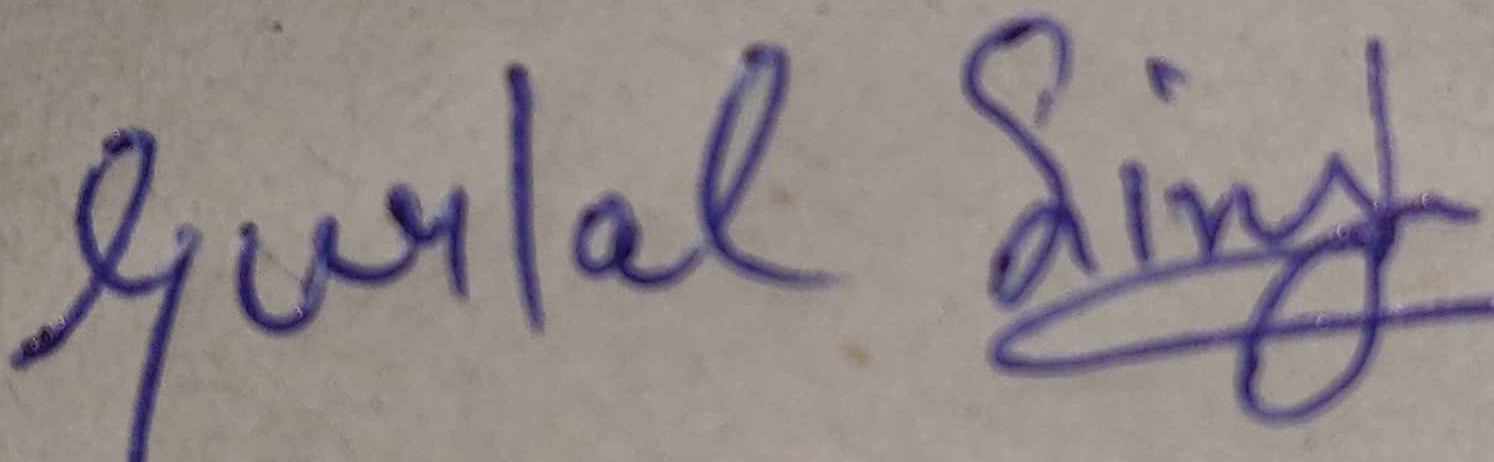 Gurlal Singh